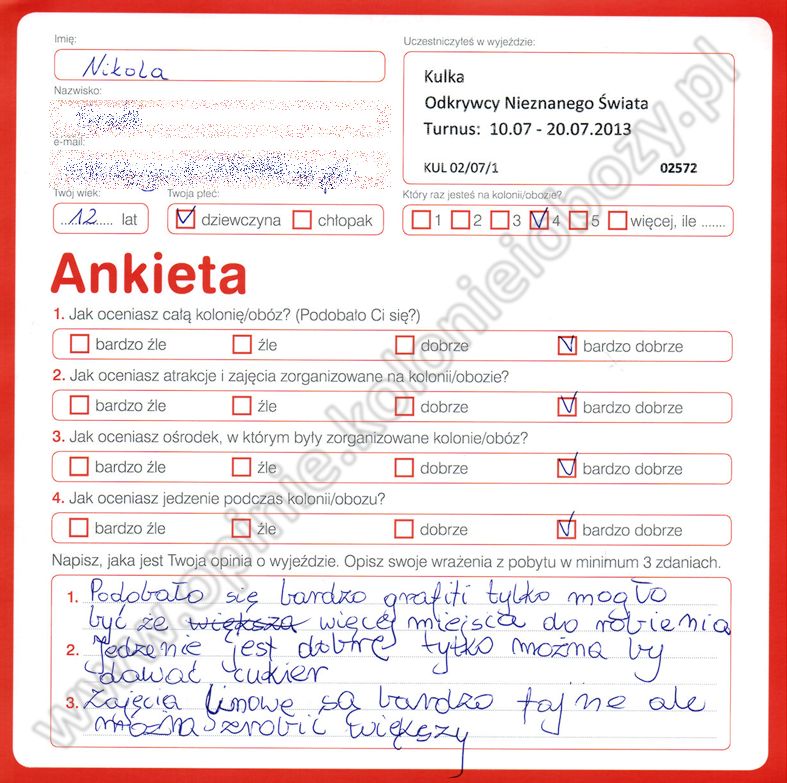 Imię:
Nikola
Nazwisko:
e-mail:
Twój wiek:
12 lat
Twoja płeć:
dziewczyna chłopak
Uczestniczyłeś w wyjeździe:
Kulka
Odkrywcy Nieznanego Świata
Turnus: 10.07 - 20.07.2013
KUL 02/07/1 02572
Który raz jesteś na kolonii/obozie?
1 2 3 4 5 więcej, ile .......
Ankieta
1. Jak oceniasz całą kolonię/obóz? (Podobało Ci się?)
bardzo źle źle dobrze bardzo dobrze
2. Jak oceniasz atrakcje i zajęcia zorganizowane na kolonii/obozie?
bardzo źle źle dobrze bardzo dobrze
3. Jak oceniasz ośrodek, w którym były zorganizowane kolonie/obóz?
bardzo źle źle dobrze bardzo dobrze
4. Jak oceniasz jedzenie podczas kolonii/obozu?
bardzo źle źle dobrze bardzo dobrze
Napisz, jaka jest Twoja opinia o wyjeździe. Opisz swoje wrażenia z pobytu w minimum 3 zdaniach.
1. Podobało się bardzo grafiti tylko mogło
być że większa więcej miejsca do robienia
2. Jedzenie jest dobre tylko można by
dawać cukier
3. Zajęcia linowe są bardzo fajne ale
można zrobić większy
www.opinie.kolonieiobozy.pl